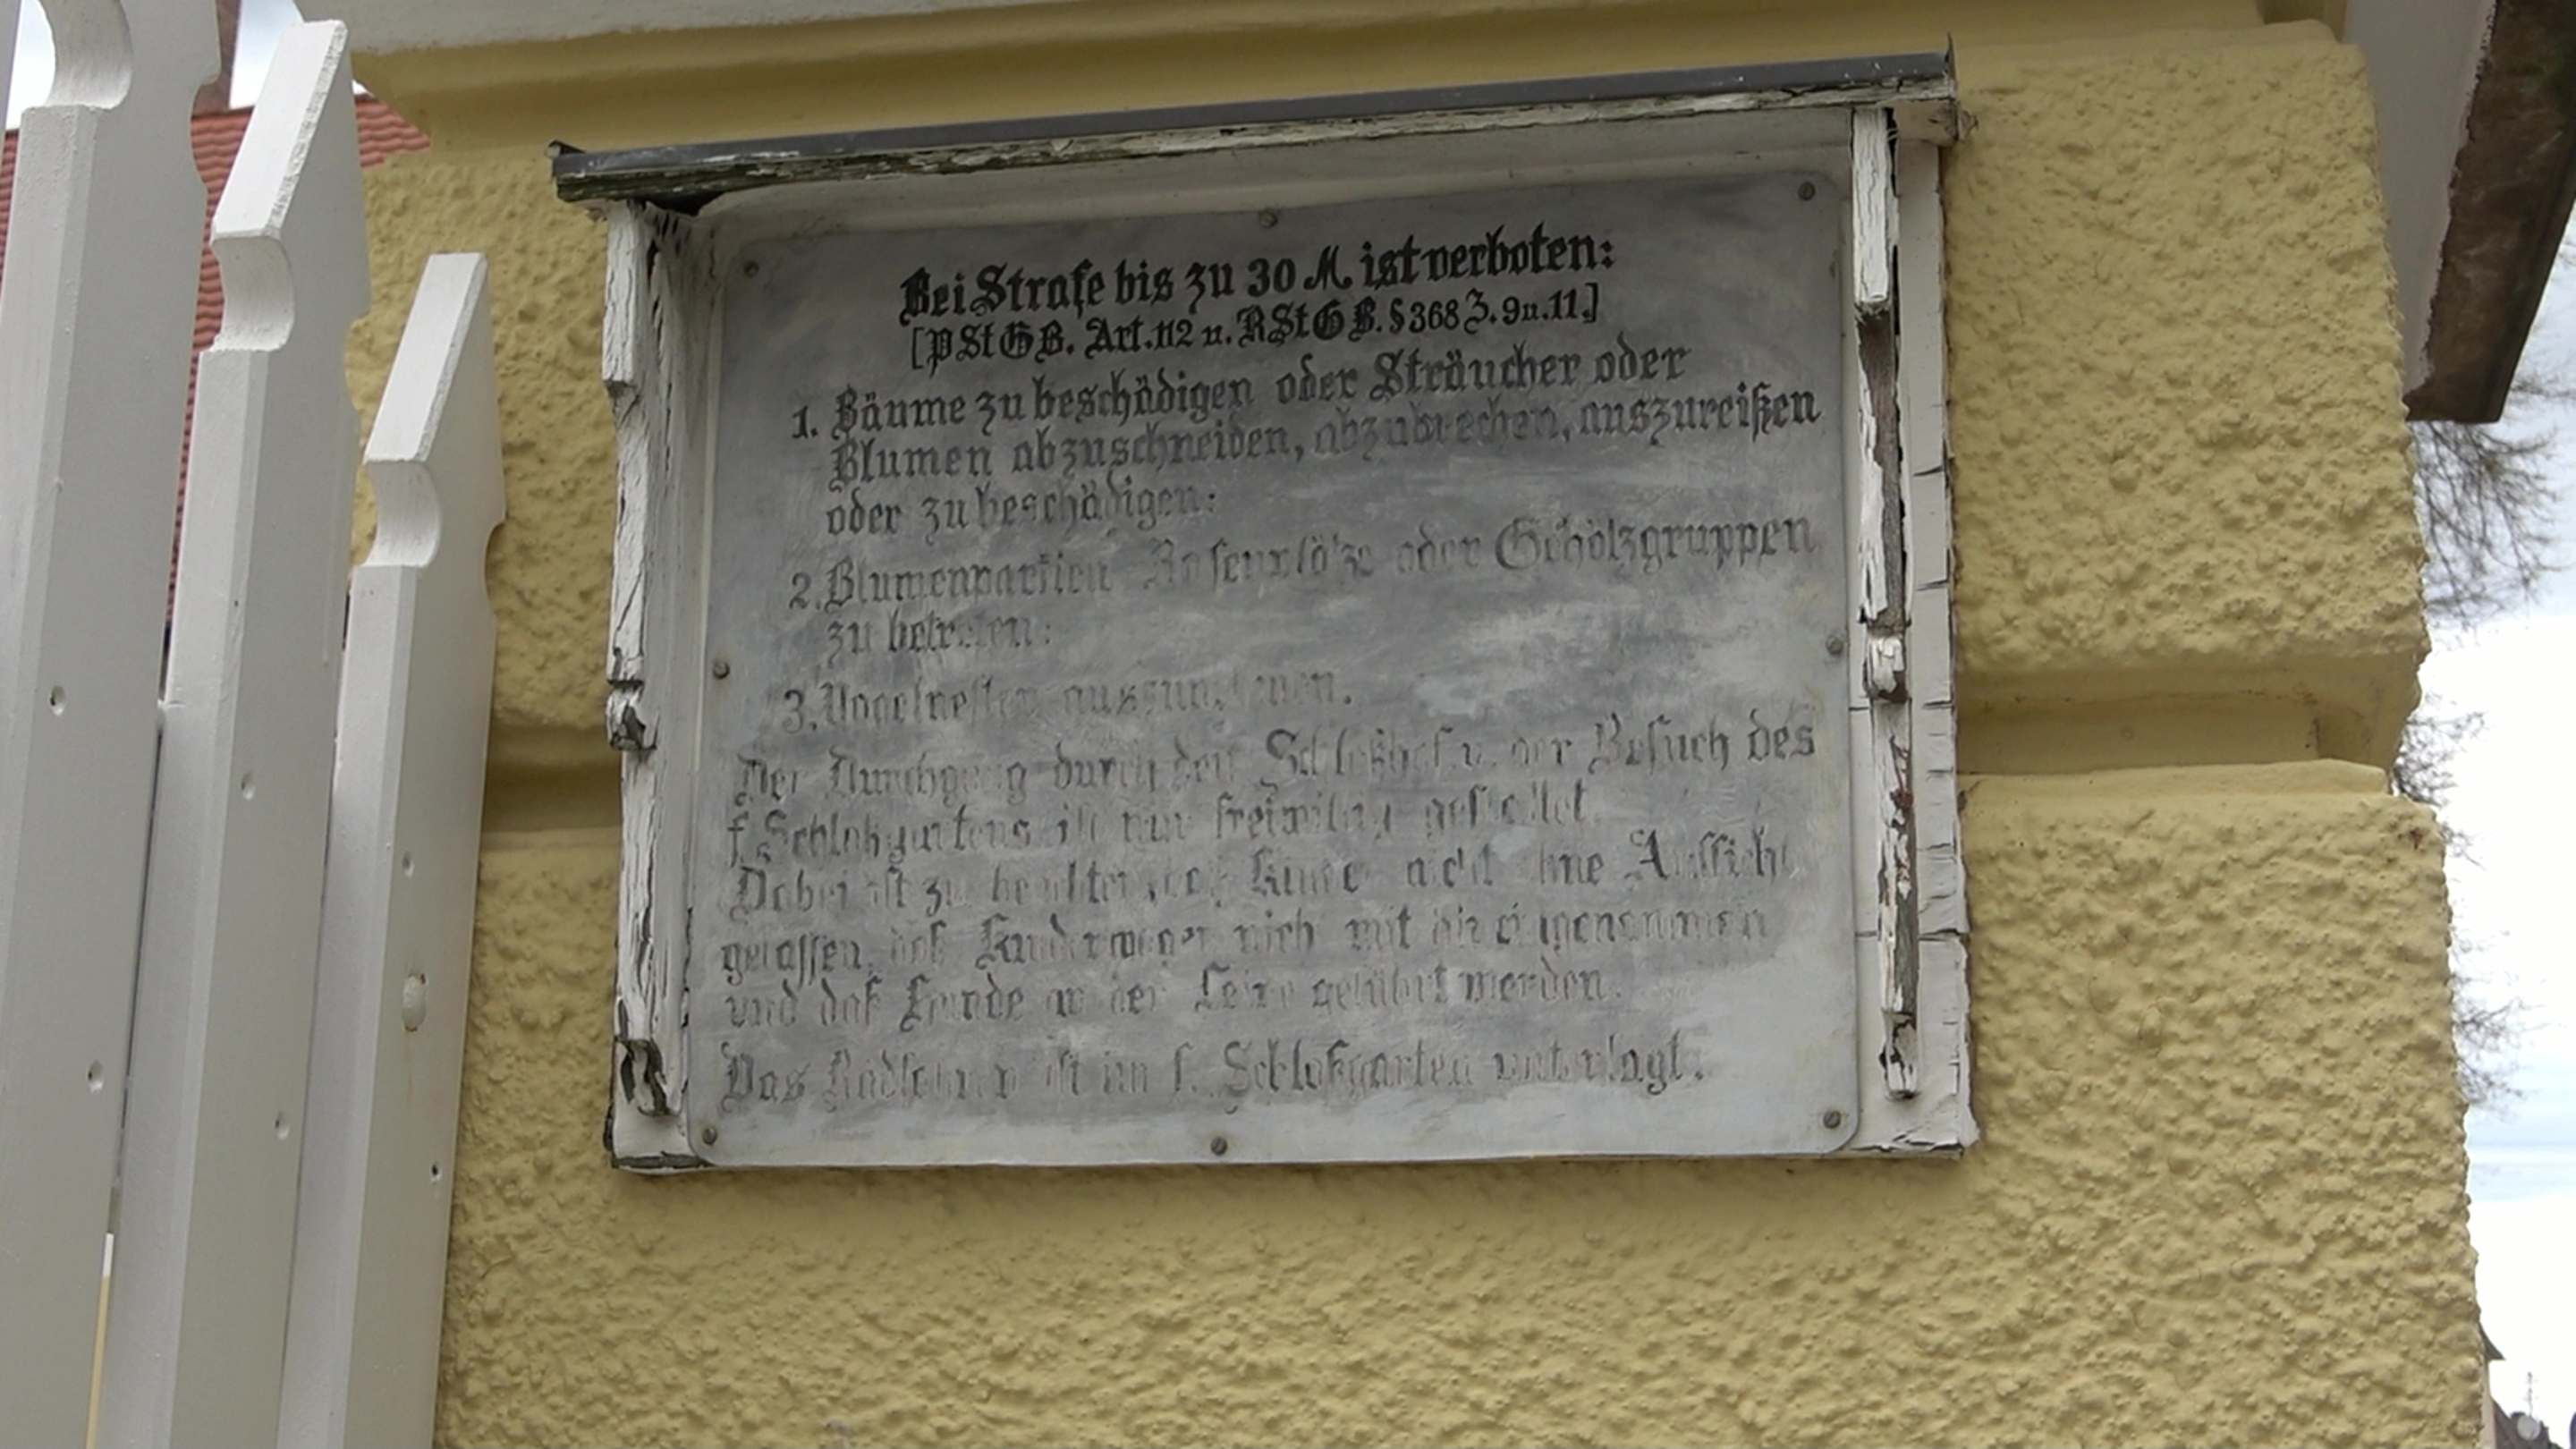 Bei Strafe bis zu 30 M. ist verboten:
[PStGB. Art. 112 u. RStGB. § 368 Z. 9 u. 11.]
1. Bäume zu beschädigen oder Sträucher oder
Blumen abzuschneiden, abzubrechen, auszureißen
oder zu beschädigen:
2. Blumenpartien oder Gehölzgruppen
zu betreten:
3. Vogelnester auszunehmen.
Der Durchgang durch den Schloßhof u. der Besuch des
f. Schloßgartens ist nur freiwillig gestattet.
Dabei ist zu beachten, daß Kinder nicht ohne Aufsicht
gelassen, daß Kinderwagen nicht mit
und daß Hunde an der Leine geführt werden.
Das Radfahren ist im f. Schloßgarten untersagt.